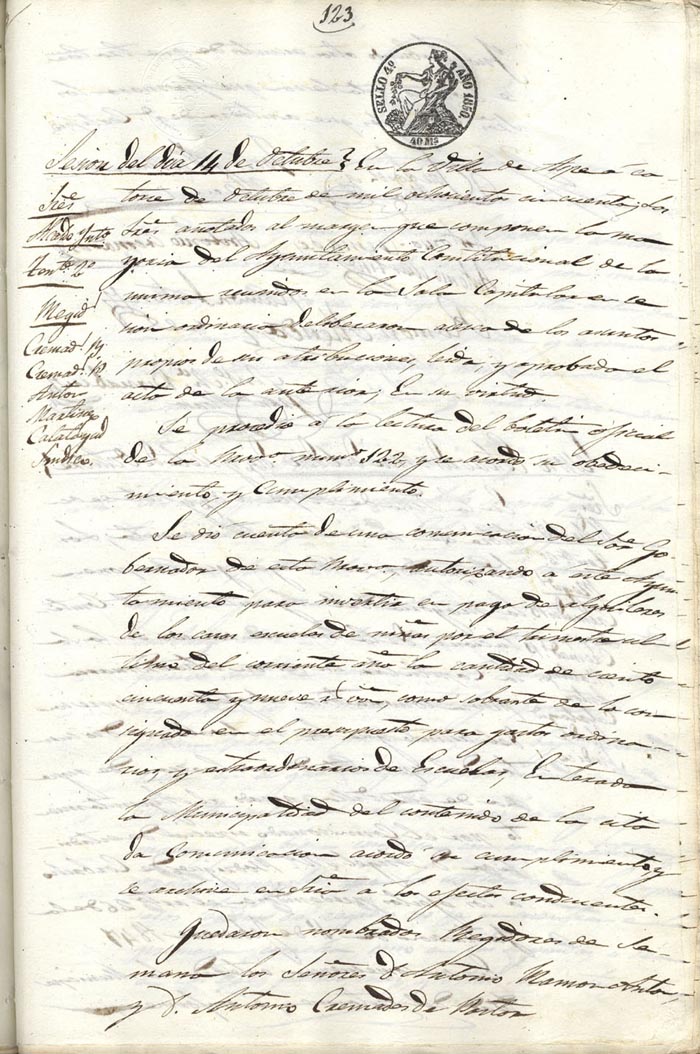 123
SELLO 4º AÑO 1850
40 Ms
Sesion del dia 14 de Octubre
Sres
Alcalde
Tente 2º
Regid
Cremads
Cremads
Anton
Martinez
Calatayud
Andreo.
En la Villa de Aspe á ca
torce de Octubre de mil ochocientos cincuenta; los
Sres anotados al margen que componen la ma
yoria del Ayuntamiento Constitucional de la
misma reunidos en la Sala Capitular en se
sion ordinaria deliberaron acerca de los asuntos
propios de sus atribuciones, leida, y aprobada el
acta de la anterior, En su virtud.
Se procedió a la lectura del boletin oficial
de la Prova numo 122, y se acordó su obedeci-
miento, y Cumplimiento.
Se dió cuenta de una comunicacion del Sor Go
bernador de esta Prova, autorizando a este Ayun
tamiento para invertir en pago de alquileres
de las casas escuelas de niñas por el trimestre ul
timo del corriente año la cantidad de ciento
cincuenta y nueve rs vn, como sobrante de la con
signada en el presupuesto para gastos ordina-
rios, y extraordinarios de Escuelas, Enterada
la Municipalidad del contenido de la cita
da Comunicacion acordó su cumplimiento, y
se archive en Sria a los efectos conducentes.
Quedaron nombrados Regidores de Se-
mana los Señores D. Antonio Ramon Anton
y D. Antonio Cremades de Pastor